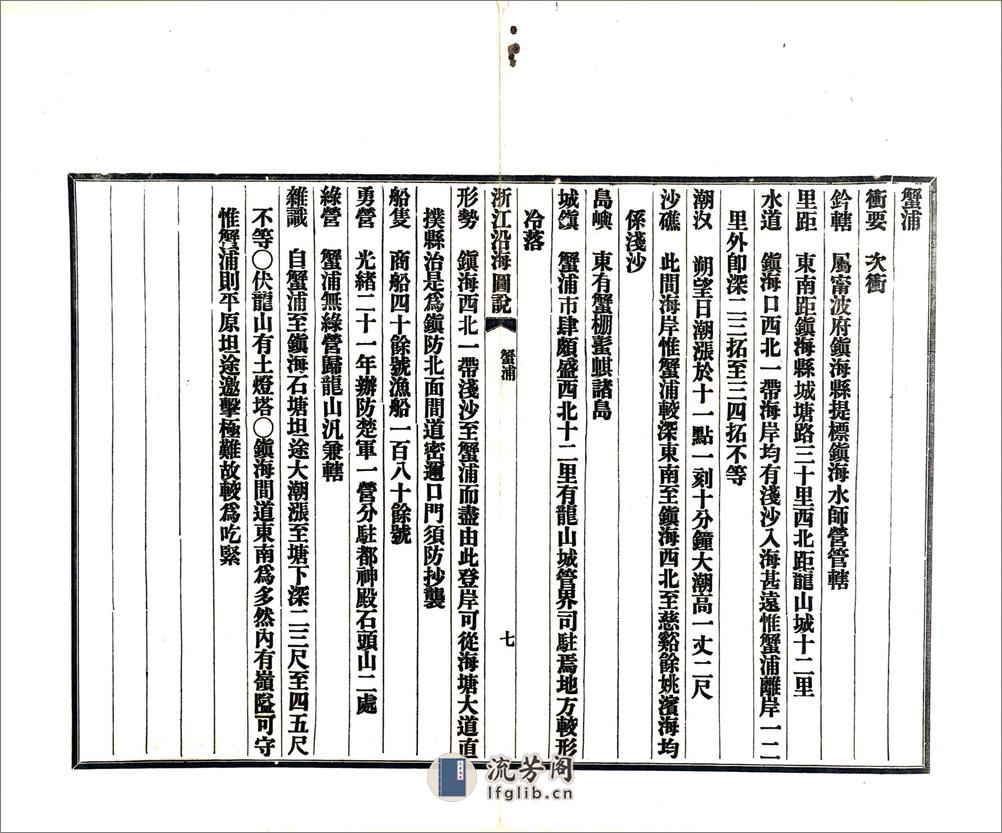 蟹浦
衝要　次衝
鈐轄　屬甯波府鎭海縣提標鎭海水師營管轄
里距　東南距鎭海縣城塘路三十里西北距龍山城十二里
水道　鎭海口西北一帶海岸均有淺沙入海甚遠惟蟹浦離岸一二
里外卽深二三拓至三四拓不等
潮汐　朔望日潮漲於十一點一刻十分鐘大潮高一丈二尺
沙礁　此間海岸惟蟹浦較深東南至鎭海西北至慈谿餘姚濱海均
係淺沙
島嶼　東有蟹棚髫麒諸島
城鎭　蟹浦市肆頗盛西北十二里有龍山城管界司駐焉地方較形
冷落
浙江沿海圖說
蟹浦
七
形勢　鎭海西北一帶淺沙至蟹浦而盡由此登岸可從海塘大道直
撲縣治是爲鎭防北面間道密邇口門須防抄襲
船隻　商船四十餘號漁船一百八十餘號
勇營　光緒二十一年辦防楚軍一營分駐都神殿石頭山二處
綠營　蟹浦無綠營歸龍山汛兼轄
雜識　自蟹浦至鎭海石塘坦途大潮漲至塘下深二三尺至四五尺
不等〇伏龍山有土燈塔〇鎭海間道東南爲多然內有嶺隘可守
惟蟹浦則平原坦途邀擊極難故較爲吃緊
流芳阁
lfglib.cn